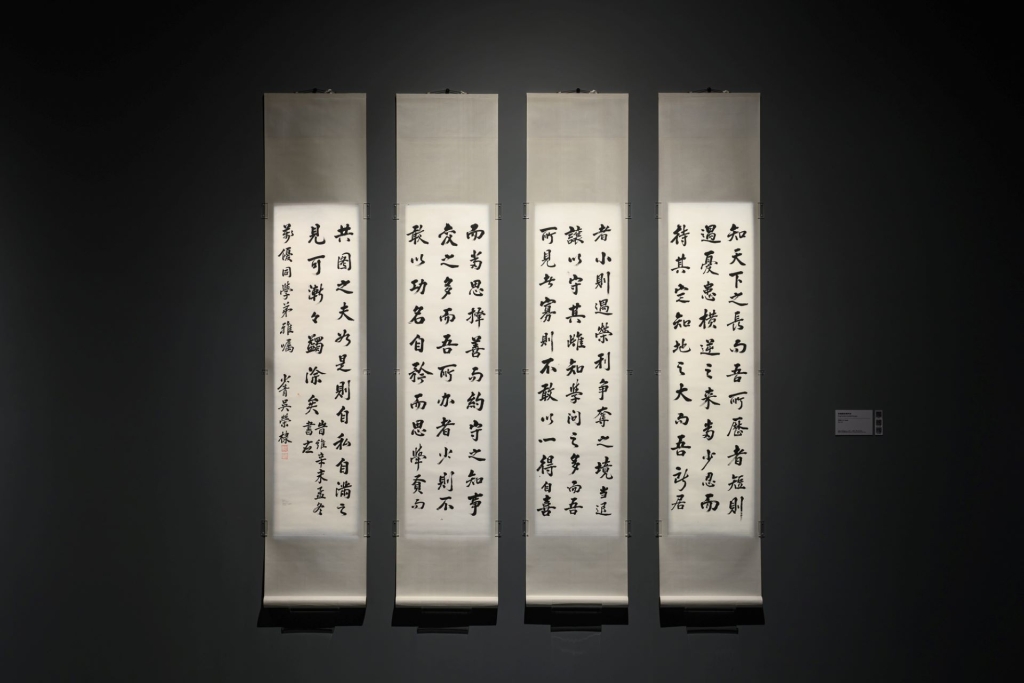 知天下之長而吾所歷者短則
遇憂患橫逆之來當少忍而
待其定知地之大而吾所居
者小則遇榮利爭奪之境當退
讓以守其雌知學問之多而吾
所見者寡則不敢以一得自喜
而當思擇善而約守之知事
變之多而吾所办者少則不
敢以功名自矜而思舉賢而
共圖之夫如是則自私自滿之
見可漸々蠲除矣
旹維辛未孟冬
書應
優同學弟雅囑
吳榮棣